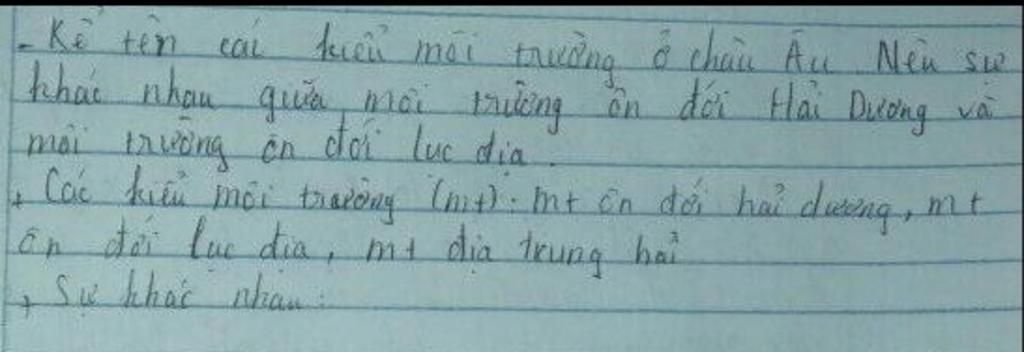 - Kể tên các kiểu môi trường ở châu Âu. Nêu sự
khác nhau giữa môi trường ôn đới Hải Dương và
môi trường ôn đới lục địa.
+ Các kiểu môi trường (mt): mt ôn đới hải dương, mt
ôn đới lục địa, mt địa trung hải
+ Sự khác nhau: